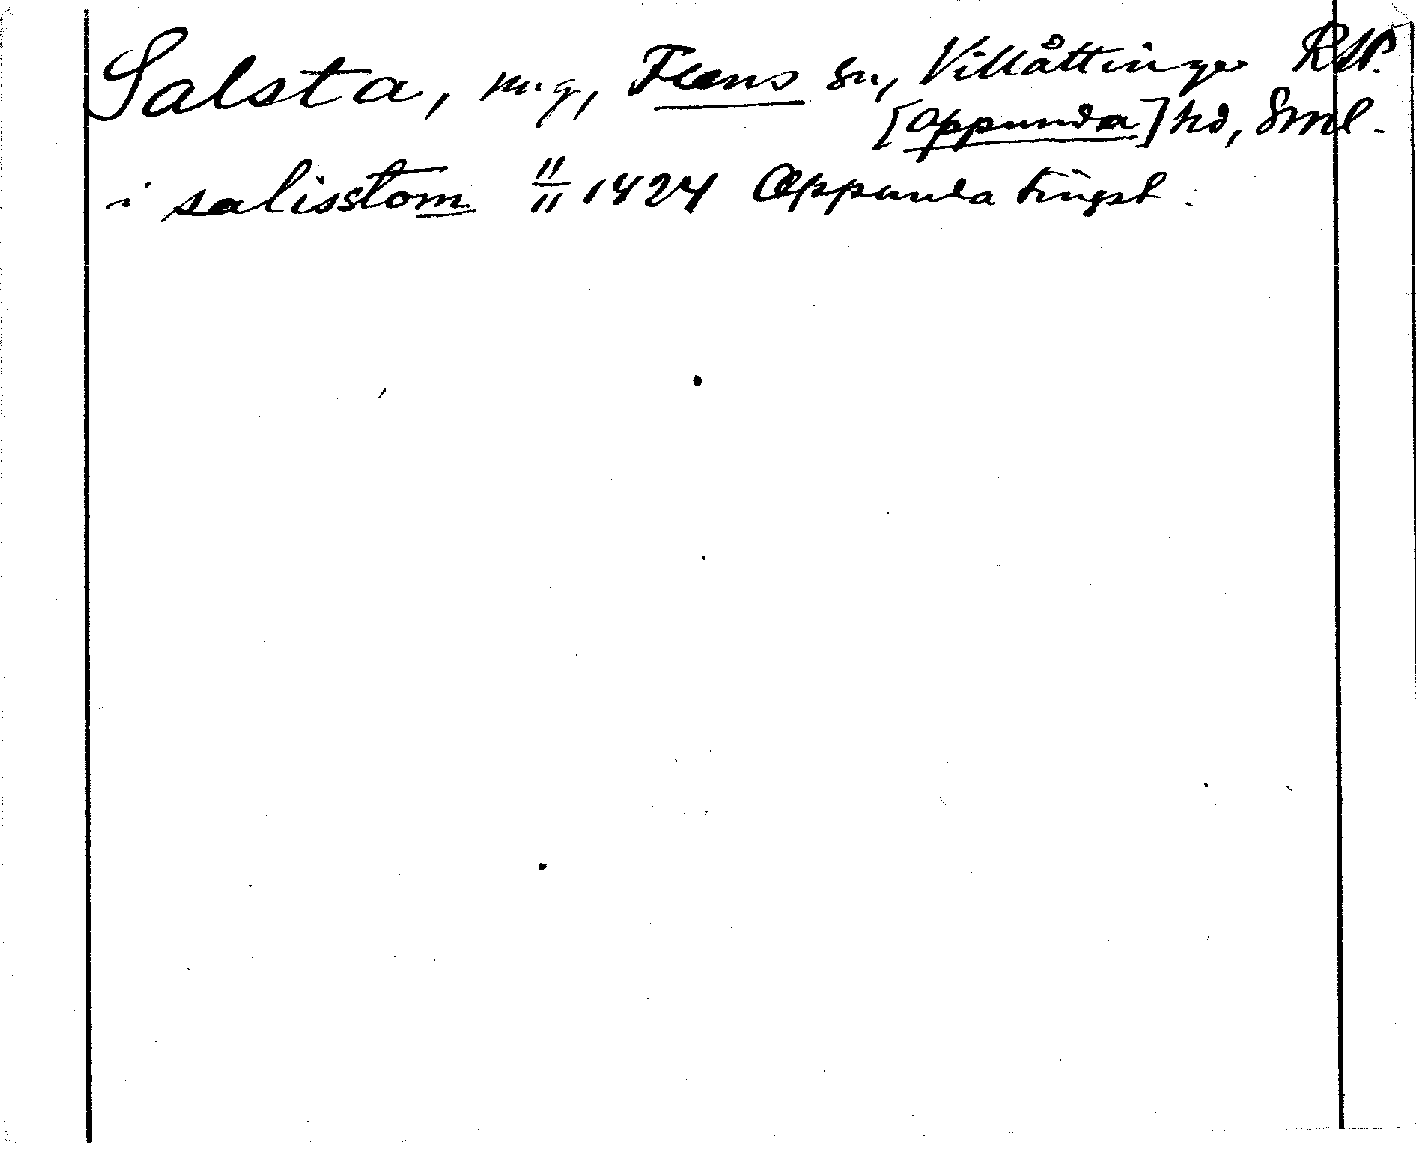 Salsta, mg, Flens sn, Villåttinge RAP.
[Oppunda] hd, Sml.
i salisstom 11/11 1424 Oppunda tingst.